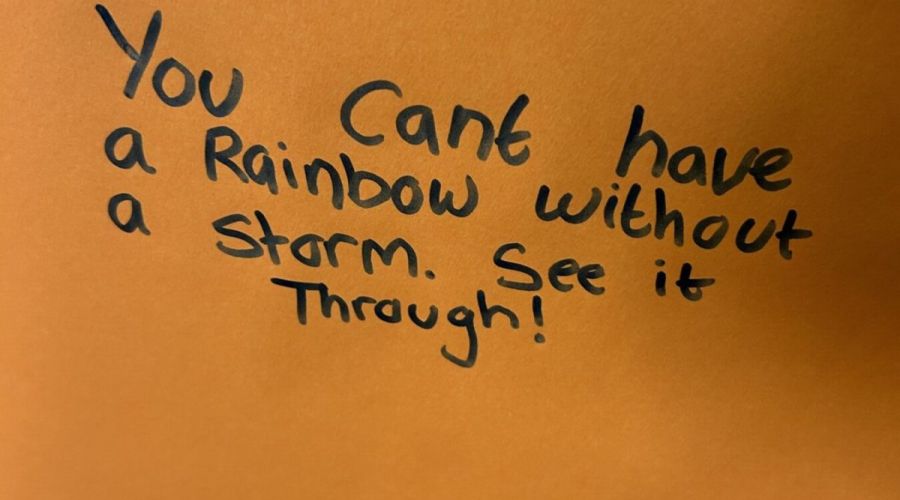 You Cant have
a Rainbow without
a Storm. See it
Through!